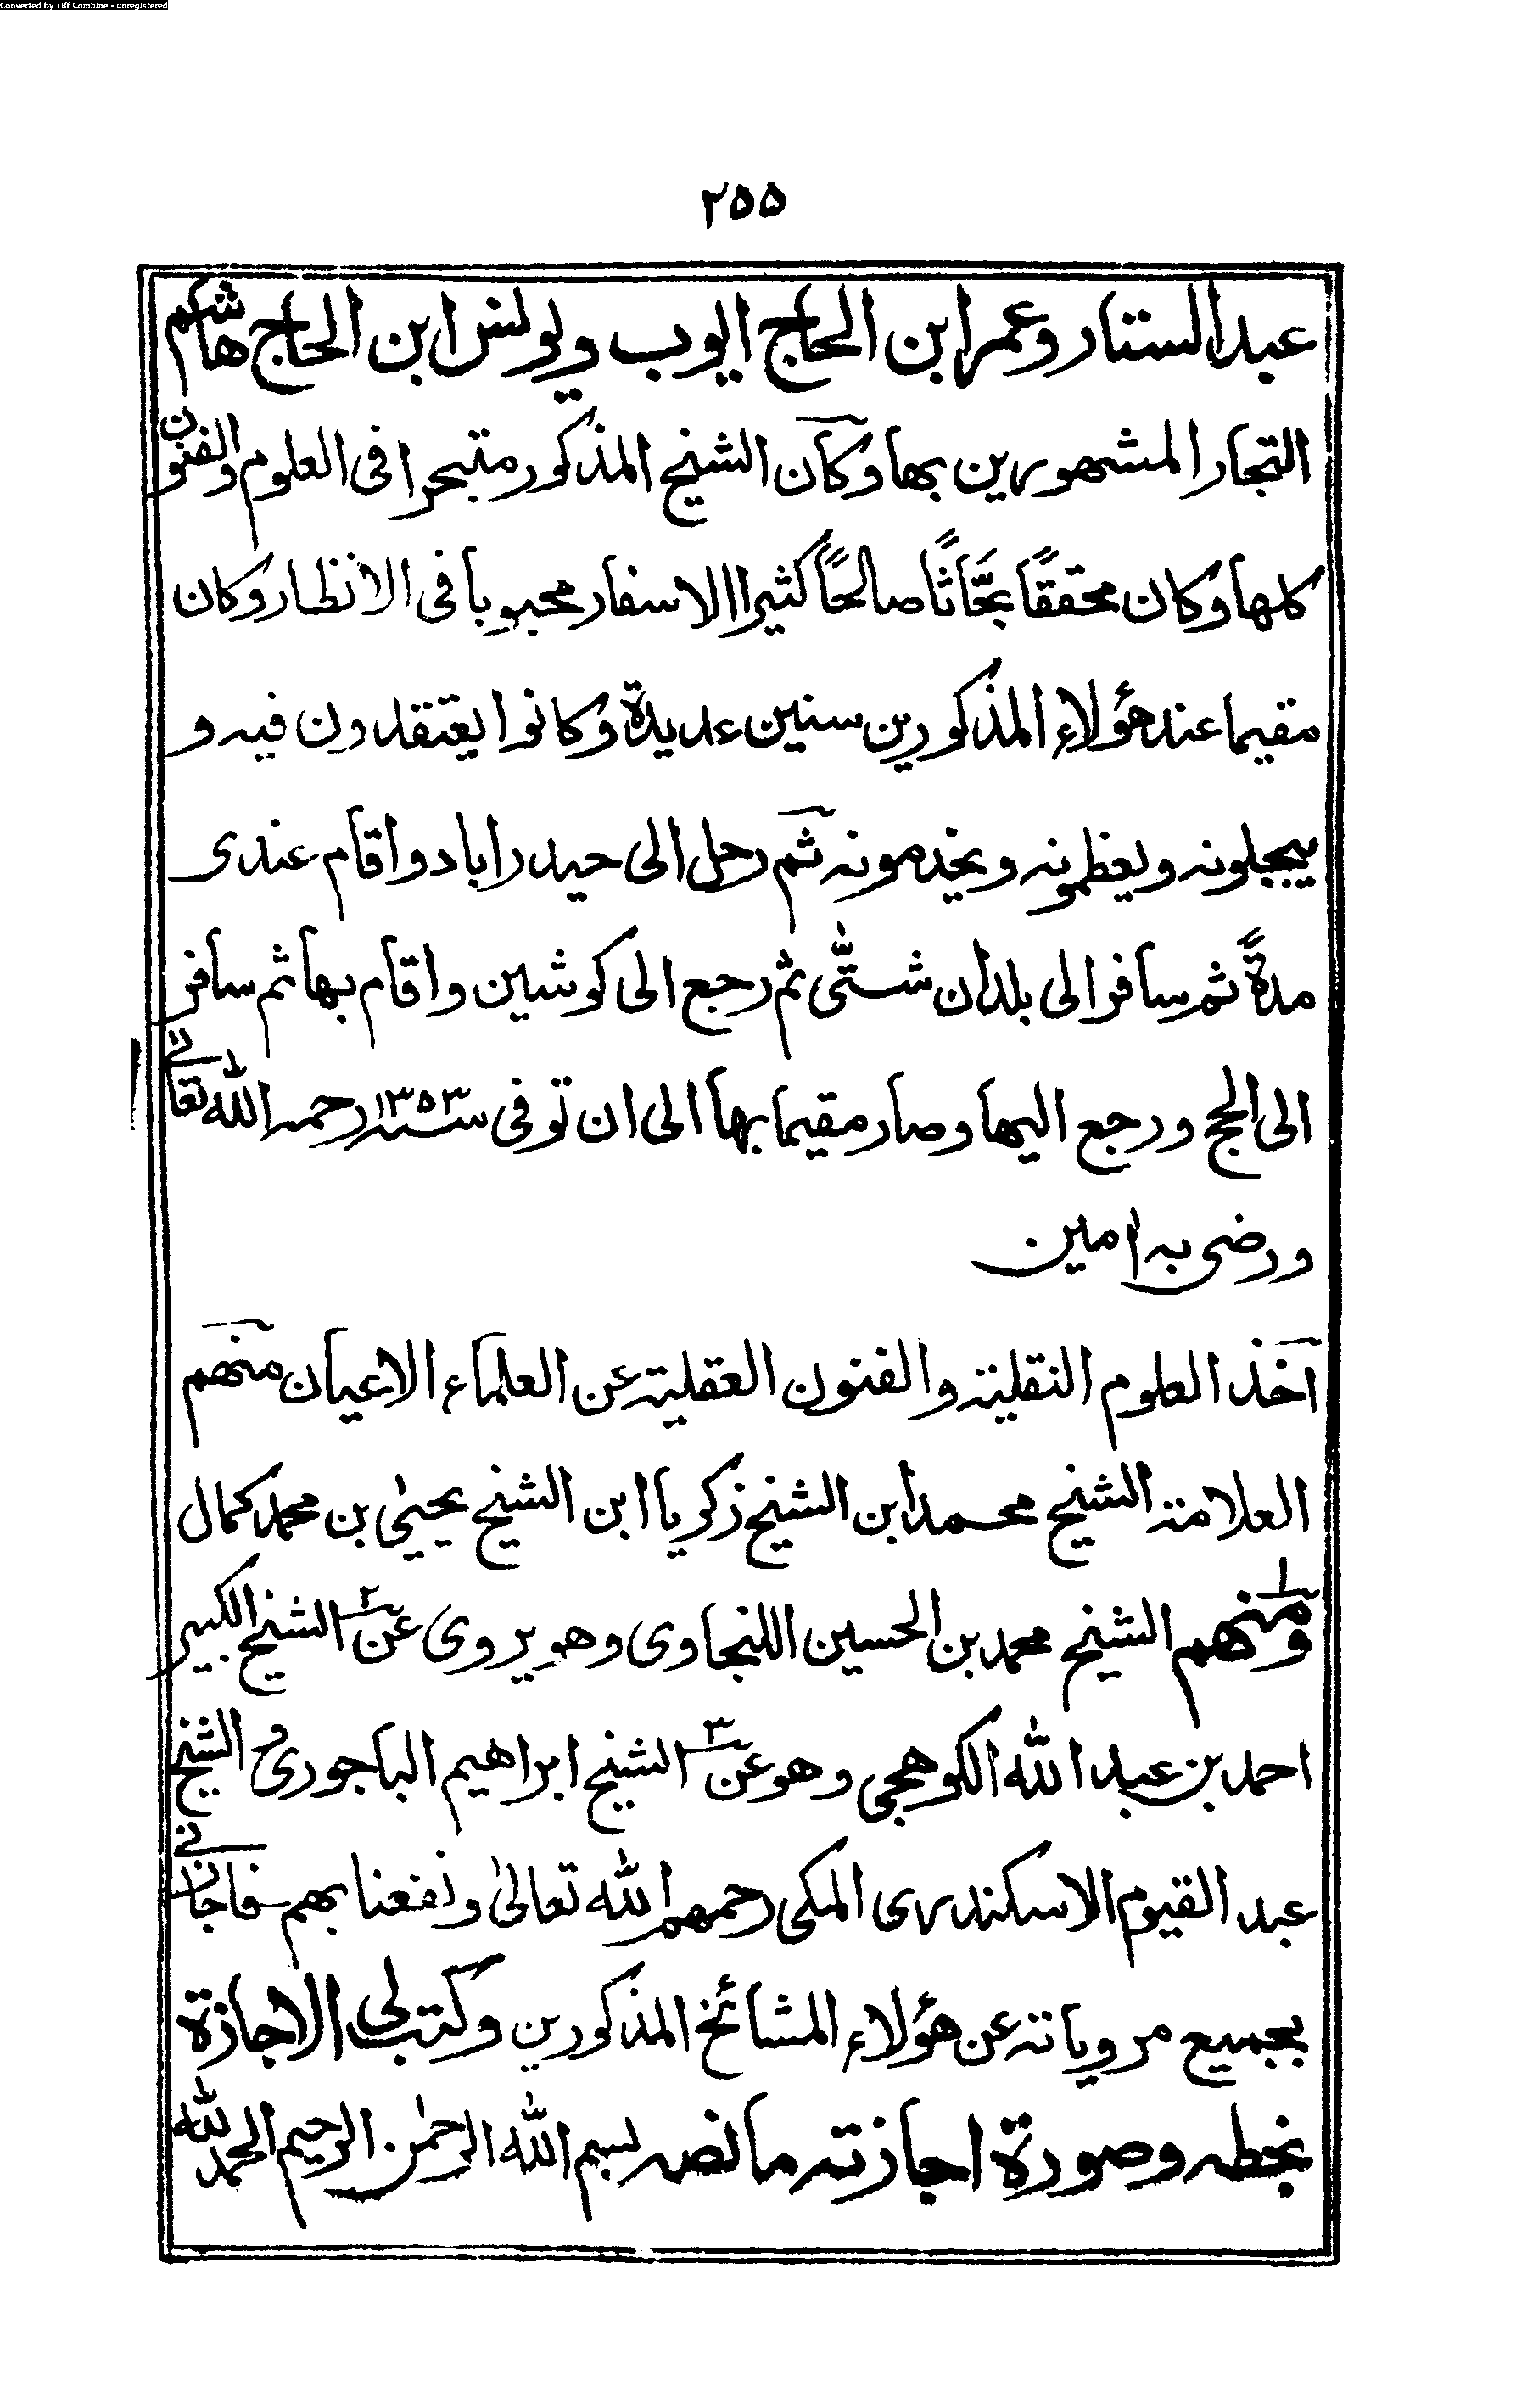 Converted by Tiff Combine - unregistered
٢٥٥
عبدالستار وعمر ابن الحاج ايوب ويونس ابن الحاج هاشم
التجار المشهورين بها وكان الشيخ المذكور متبحرا فى العلوم والفنون
كلها وكان محققًا بحَّاثًا صالحًا كثيرا الاسفار محبوبا فى الانظار وكان
مقيما عند هؤلاء المذكورين سنين عديدة وكانوا يعتقدون فيه و
يبجلونه ويعظمونه ويخدمونه ثم رحل الى حيدراباد واقام عندى
مدةً ثم سافر الى بلدان شتّٰى ثم رجع الى كوشين واقام بها ثم سافر
الى الحج ورجع اليها وصار مقيما بها الى ان توفى سنه ١٣٥٣ رحمه الله تعالى
ورضى به امين
اخذ العلوم النقلية والفنون العقلية عن العلماء الاعيان منهم
العلامة الشيخ محمد ابن الشيخ زكريا ابن الشيخ يحيىٰ بن محمد كمال
ومنهم الشيخ محمد بن الحسين اللنجاوى وهو يروى عن الشيخ الكبير
احمد بن عبد الله الكوهجى وهو عن الشيخ ابراهيم الباجورى والشيخ
عبد القيوم الاسكندرى المكى رحمهم الله تعالىٰ ونفعنا بهم فاجازنى
بجميع مروياته عن هؤلاء المشائخ المذكورين وكتب لى الاجازة
بخطه وصورة اجازته ما نصه بسم الله الرحمٰن الرحيم الحمد لله